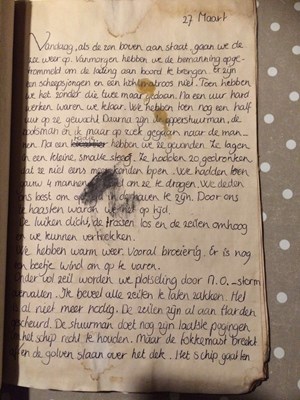 27 Maart
Vandaag, als de zon boven aan staat, gaan we de
zee weer op. Vanmorgen hebben we de bemanning opge-
trommeld om de lading aan boord te brengen. er zijn
een scheepsjongen en een matroos niet. Toen hebben
we het zonder die twee maar gedaan. Na een uur hard
werken waren we klaar. We hebben toen nog een half
uur op ze gewacht. Daarna zijn opperstuurman, de
bootsman en ik maar op zoek gegaan naar de man-
nen. Na een hebben we ze gevonden. Ze lagen
in een kleine, smalle steeg. Ze hadden zo gedronken
dat ze niet eens meer konden lopen. We hadden toen
4 mannen om ze te dragen. We deden
ons best om in de haven te zijn. Door ons
haasten waren we net op tijd.
De luiken dicht, de trossen los en de zeilen omhoog
en we kunnen vertrekken.
We hebben warm weer. Vooral broeierig. Er is nog
een beetje wind om op te varen.
we plotseling door N.O.-storm
overvallen. Ik beveel alle zeilen te laten zakken. Het
al niet meer nodig. De zeilen zijn al aan flarden
gescheurd. De stuurman doet nog zijn laatste pogingen
het schip recht te houden. Maar de fokkemast breekt
en de golven slaan over het dek. Het schip gaat ten